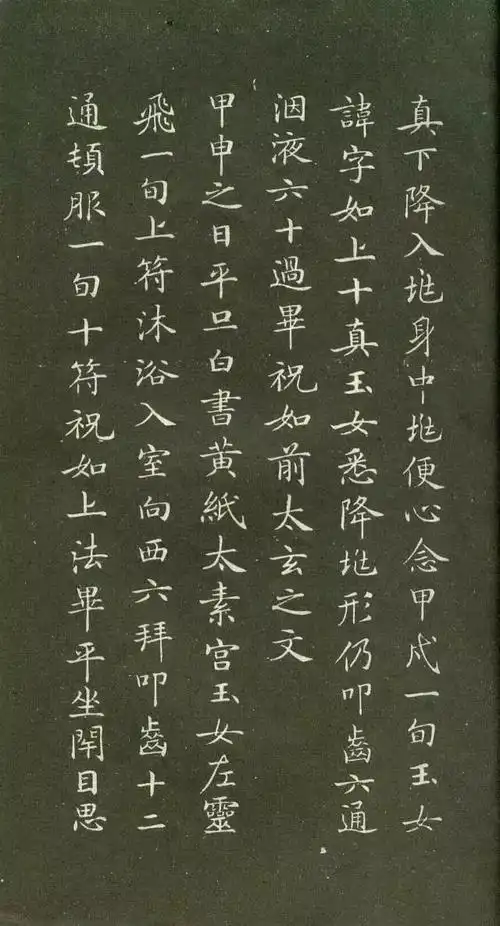 真下降入兆身中兆便心念甲戌一旬玉女
諱字如上十真玉女悉降兆形仍叩齒六通
咽液六十過畢祝如前太玄之文
甲申之日平旦白書黄紙太素宮玉女左靈
飛一旬上符沐浴入室向西六拜叩齒十二
通頓服一旬十符祝如上法畢平坐閉目思